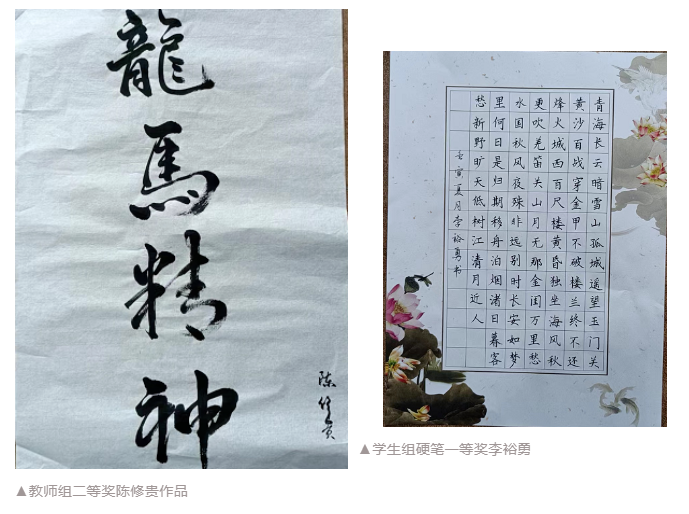 龍馬精神
陈修贵
青海长云暗雪山孤城遥望玉门关
黄沙百战穿金甲不破楼兰终不还
烽火城西百尺楼黄昏独坐海风秋
更吹羌笛关山月无那金闺万里愁
水国秋风夜殊非远别时长安如梦
里何日是归期移舟泊烟渚日暮客
愁新野旷天低树江清月近人
壬寅夏月李裕勇书
▲学生组硬笔一等奖李裕勇
▲教师组二等奖陈修贵作品